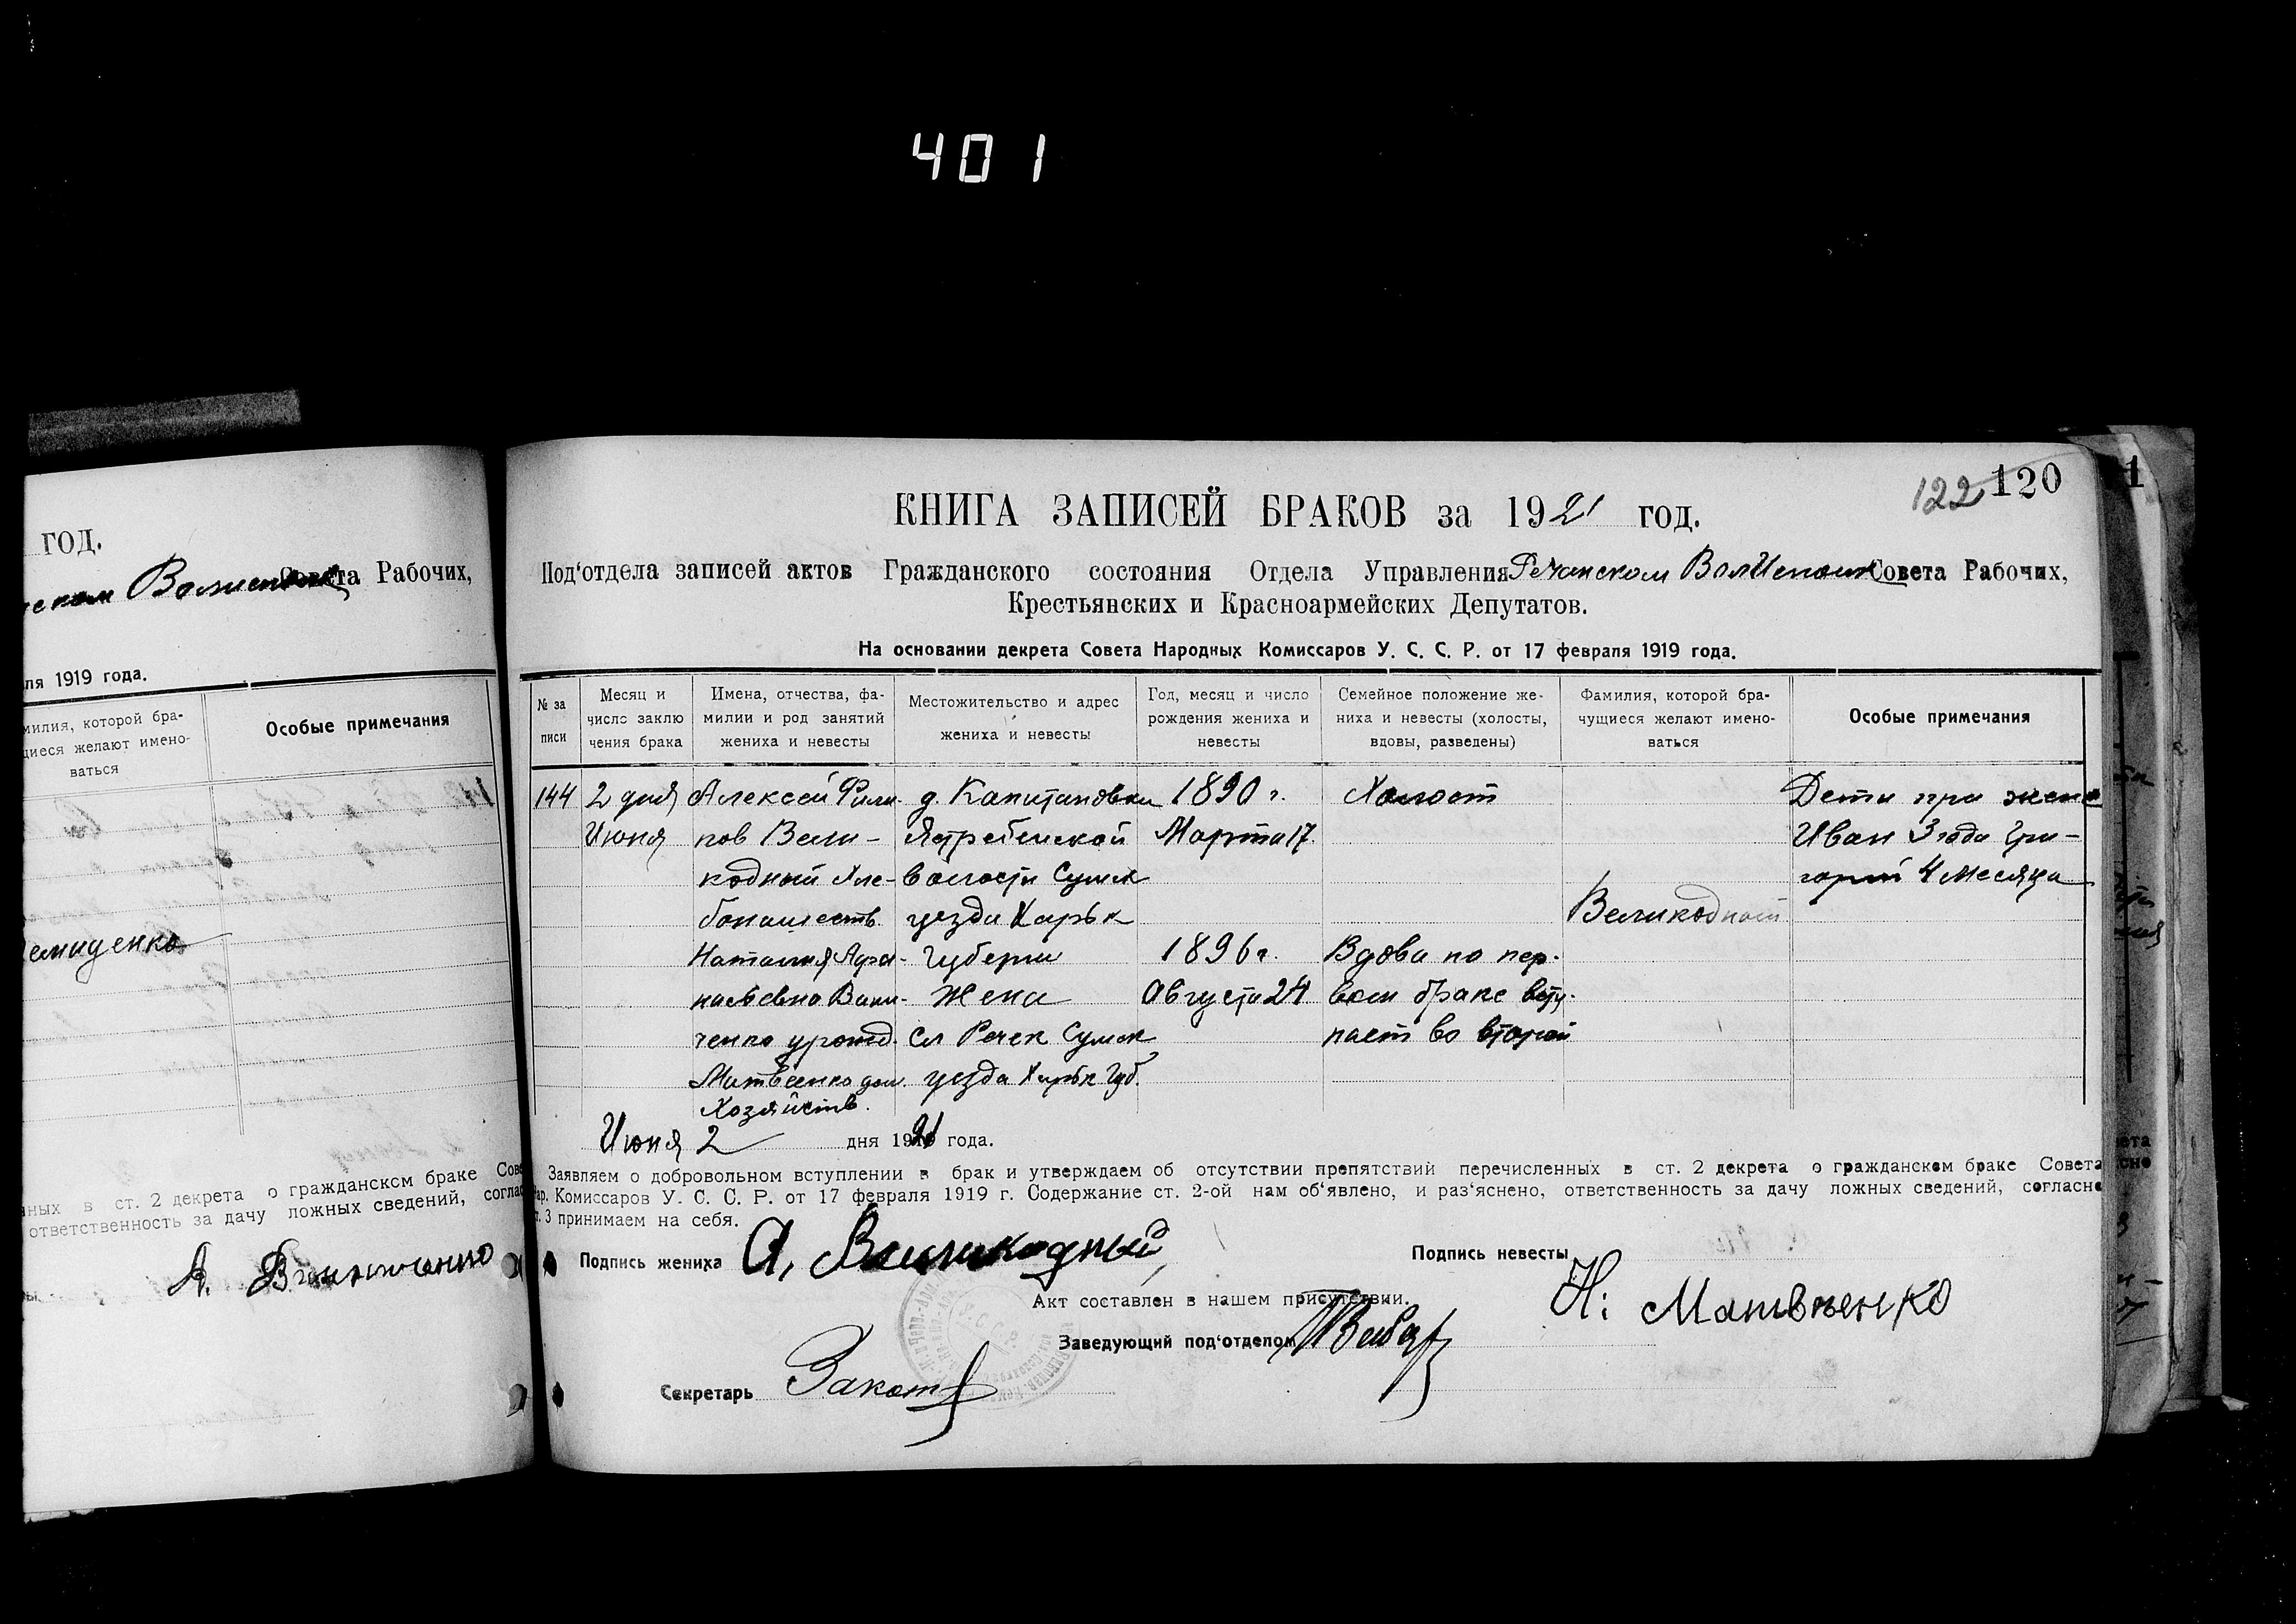 401
год.
Совета Рабочих,
ля 1919 года.
милия, которой бра-
щиеся желают имено-
ваться
Особые примечания
емиденко
ных в ст. 2 декрета о гражданском браке Сове
ответственность за дачу ложных сведений, соглас
А.
122 120
КНИГА ЗАПИСЕЙ БРАКОВ за 1921 год.
Под‘отдела записей актов Гражданского состояния Отдела Управления Речанском ВолИсполк Совета Рабочих,
Крестьянских и Красноармейских Депутатов.
На основании декрета Совета Народных Комиссаров У. С. С. Р. от 17 февраля 1919 года.
№ за
писи
Месяц и
число заклю
чения брака
Имена, отчества, фа-
милии и род занятий
жениха и невесты
Местожительство и адрес
жениха и невесты
Год, месяц и число
рождения жениха и
невесты
Семейное положение же-
ниха и невесты (холосты,
вдовы, разведены)
Фамилия, которой бра-
чущиеся желают имено-
ваться
Особые примечания
144
2 дня
Июня
Алексей Фили-
пов Вели-
кодный Хле-
бопашеств.
Наталия Афа-
насьевна Вини-
ченко урожд.
Матвеенко дом.
Хозяйств.
д. Капитановки
Ястребенской
волости Сумск
уезда Харьк
Губерни
Жена
Сл Речек Сумск
уезда Харьк Губ.
1890 г.
Марта 17.
1896 г.
Августа 24
Холост
Вдова по пер-
вом браке всту-
пает во второй
Великодной
Дети при жене
Иван 3 года Гри-
горий 4 месяца
Июня 2 дня 1921 года.
Заявляем о добровольном вступлении в брак и утверждаем об отсутствии препятствий перечисленных в ст. 2 декрета о гражданском браке Совета
Нар. Комиссаров У. С. С. Р. от 17 февраля 1919 г. Содержание ст. 2-ой нам об‘явлено, и раз‘яснено, ответственность за дачу ложных сведений, согласно
ст. 3 принимаем на себя.
Подпись жениха А. Великодный
Подпись невесты Н: Матвѣенко
Акт составлен в нашем присутствии.
Заведующий под‘отделом
Секретарь